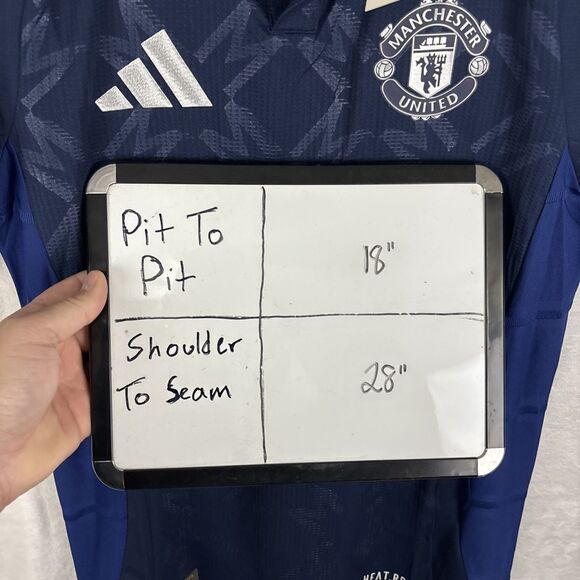 MANCHESTER
UNITED
Pit To
Pit
18"
Shoulder
To Seam
28"